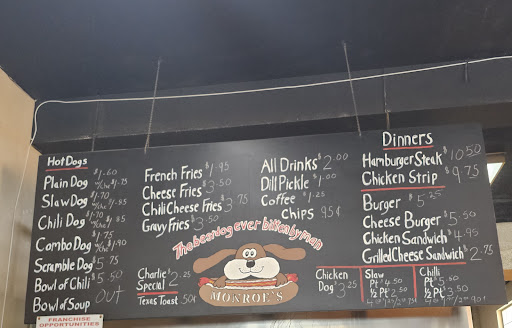 Hot Dogs
Plain Dog $1.60
w/che $1.75
Slaw Dog $1.70
w/che $1.95
Chili Dog $1.70
w/che $1.85
Combo Dog $1.75
w/che $1.90
Scramble Dog $5.75
Bowl of Chili $5.50
Bowl of Soup OUT
FRANCHISE
OPPORTUNITIES
French Fries $1.95
Cheese Fries $3.50
Chili Cheese Fries $3.75
Gravy Fries $3.50
All Drinks $2.00
Dill Pickle $1.00
Coffee $1.25
Chips 95¢
The best dog ever bitten by man
MONROE'S
Charlie's
Special $2.25
Texas Toast 50¢
Chicken
Dog $3.25
Dinners
Hamburger Steak $10.50
Chicken Strip $9.75
Burger $5.25
Cheese Burger $5.50
Chicken Sandwich $4.95
Grilled Cheese Sandwich $2.75
Slaw
Pt $4.50
½ Pt $2.50
Chili
Pt $5.50
½ Pt $3.50